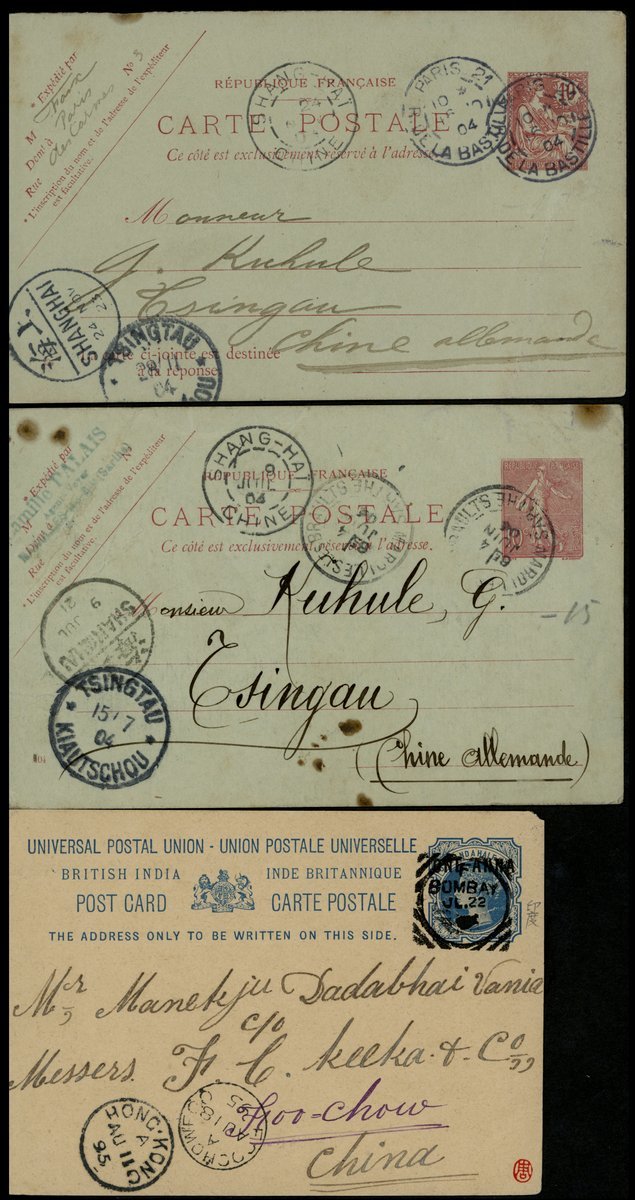 * Expédié par
Nº 3
M
Paris
Demt à
Rue des Carmes
* L'inscription du nom et de l'adresse de l'expéditeur
est facultative.
SHANG-HAI
CHINE
PARIS_21
04
R. DE LA BASTILLE
04
DE LA BASTILLE
10
RÉPUBLIQUE FRANÇAISE
CARTE POSTALE
Ce côté est exclusivement réservé à l'adresse.
Monsieur
G. Kuhule
Tsingau
Chine allemande
SHANGHAI
24 NOV
23
上海
* TSINGTAU *
29 11
04
ci-jointe est destinée
à la réponse.
* Expédié par
Nº
PALAIS
M
Rue
* L'inscription du nom et de l'adresse de l'expéditeur
est facultative.
SHANG-HAI
9
JUIL
04
CHINE
RÉPUBLIQUE FRANÇAISE
CARTE POSTALE
Ce côté est exclusivement réservé à l'adresse.
SARTHE
Monsieur Kuhule, G.
-15
Tsingau
(Chine allemande)
SHANGHAI
9 JUL
21
* TSINGTAU *
15/7
04
KIAUTSCHOU
UNIVERSAL POSTAL UNION - UNION POSTALE UNIVERSELLE
BRITISH INDIA INDE BRITANNIQUE
POST CARD CARTE POSTALE
THE ADDRESS ONLY TO BE WRITTEN ON THIS SIDE.
ONE ANNA
BOMBAY
JL.22
印度
Mr Manekju Dadabhai Vania
c/o
Messers. F. C. Keeka & Co
Foo-chow
China
HONG-KONG
A
11
95
FOOCHOWFOO
A
95
唐